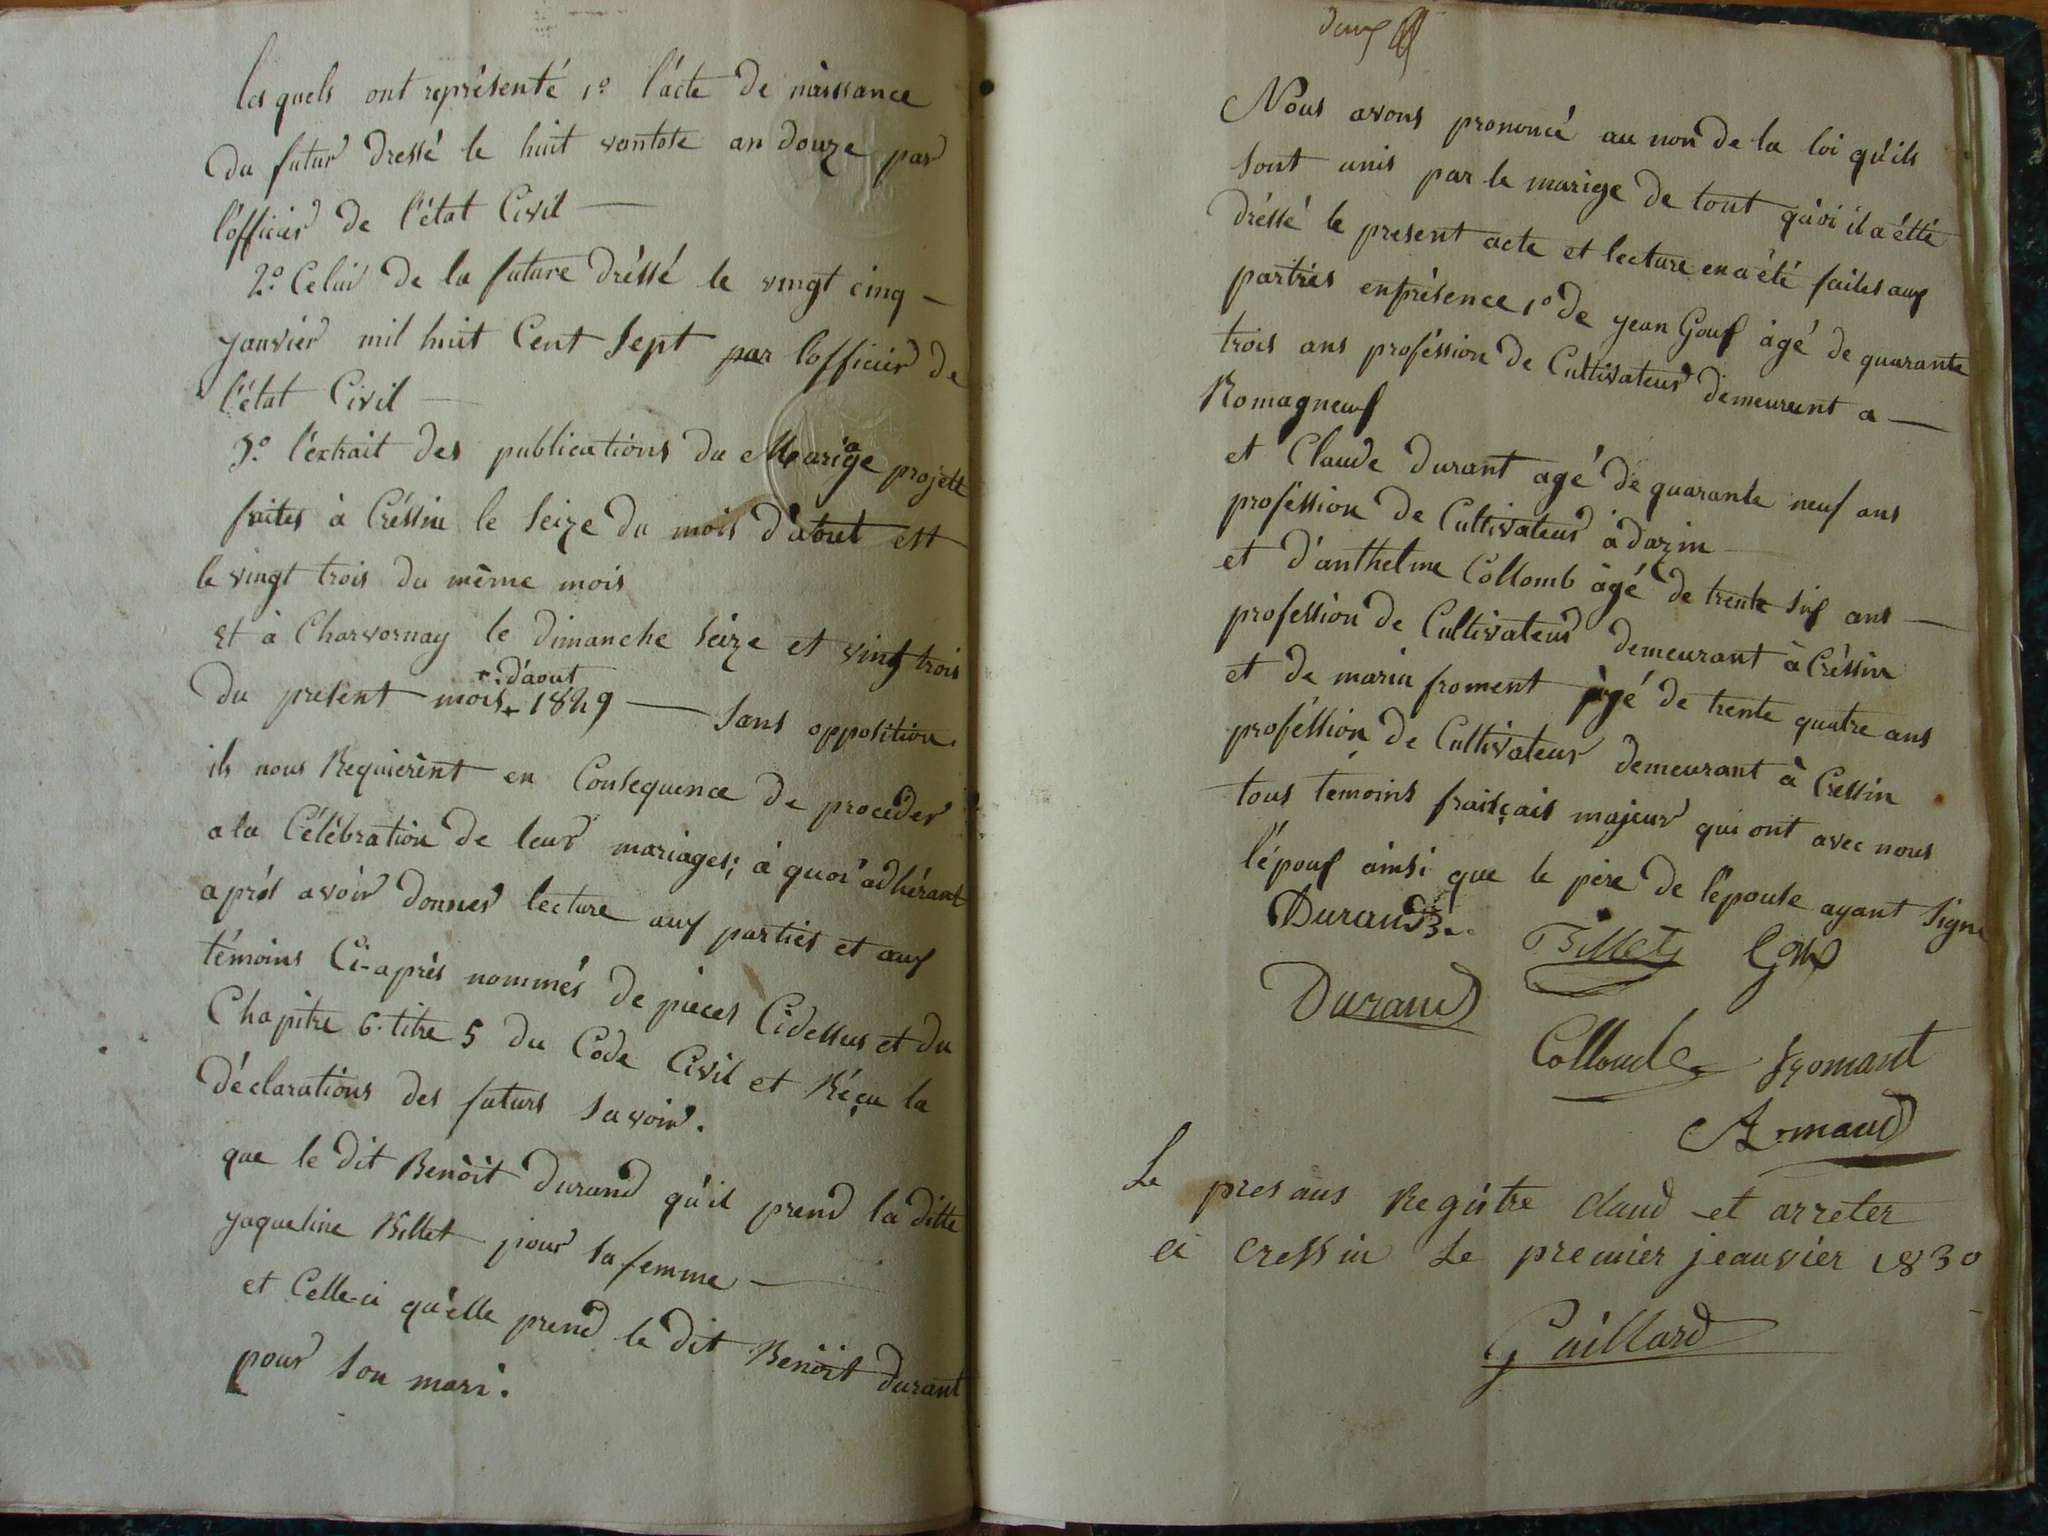 les quels ont représenté 1.º l'acte de naissance
du futur dressé le huit vantose an douze par
l'officier de l'état Civil —
2.º Celui de la future dréssé le vingt cinq —
janvier mil huit Cent Sept par l'officier de
l'état Civil —
3.º l'éxtrait des publications du Mariage projetté
faites à Créssin le Seize du mois d'aout est
le vingt trois du même mois
Et à Charvornay le dimanche Seize et vingt trois
d'aout
du present mois 1829 — Sans opposition.
ils nous Requierènt en Consequence de procéder
a la Célébration de leur mariages; à quoi adhérant
aprés avoir donner lecture aux parties et aux
témoins Ci-après nommés de pieces Cidessus et du
Chapitre 6. titre 5 du Code Civil et Réçu la
déclarations des futurs Savoir.
que le dit Benoit durand qu'il prend la ditte
jaqueline Billet pour sa femme —
et Celle-ci qu'elle prend le dit Benoit durant
pour Son mari.
deux
Nous avons prononcé au non de la loi qu'ils
Sont unis par le marige de tout quoi il a étté
dréssé le present acte et lecture en a été faites aux
partiés en présence 1.º de jean Goux àgé de quarante
trois ans proféssion de Cultivateur demeurent a —
Romagneux
et Claude durant agé de quarante neuf ans
proféssion de Cultivateur à dazin —
et d'anthelme Collomb àgé de trente Six ans —
profession de Cultivateur demeurant à Créssin
et de marin froment àgé de trente quatre ans
proféssion de Cultivateur demeurant à Cressin
tous temoins français majeur qui ont avec nous
l'époux ainsi que le père de l'épouse ayant Signé
Durand
Billet Goux
Durand
Collomb fromant
Armand
Le presans Registre claud et arreter
a cressin Le premier jeanvier 1830
Gaillard